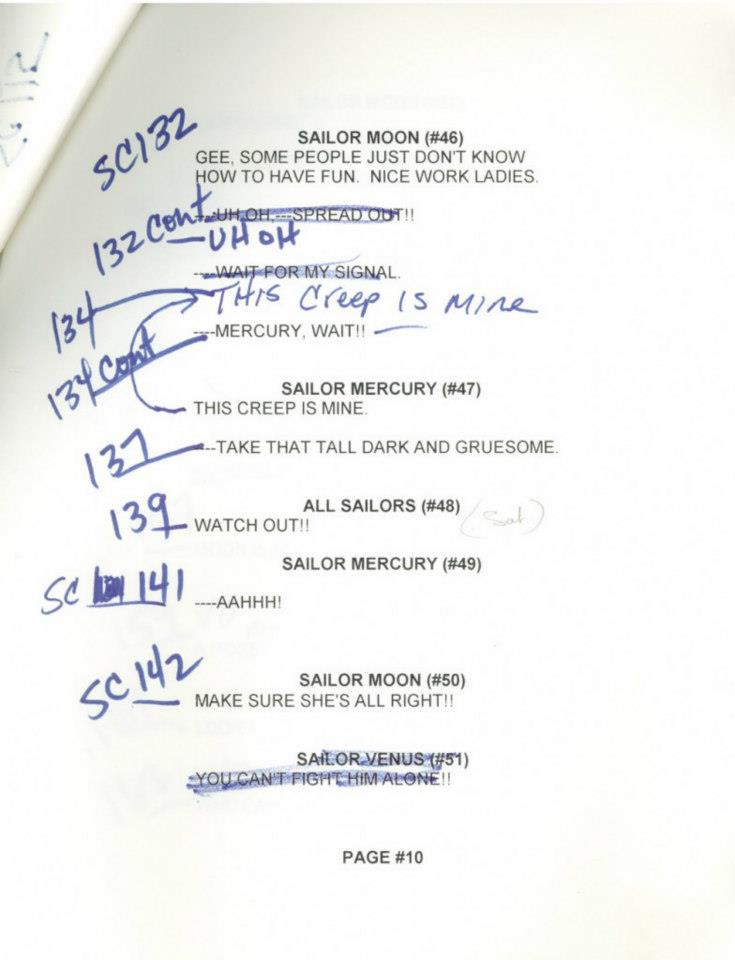 SC132
SAILOR MOON (#46)
GEE, SOME PEOPLE JUST DON'T KNOW
HOW TO HAVE FUN. NICE WORK LADIES.
132 Cont
----UH OH,---SPREAD OUT!!
UH OH
----WAIT FOR MY SIGNAL.
134
THIS Creep IS Mine
134 Cont
----MERCURY, WAIT!!
SAILOR MERCURY (#47)
THIS CREEP IS MINE.
137
----TAKE THAT TALL DARK AND GRUESOME.
139
ALL SAILORS (#48)
WATCH OUT!!
SAILOR MERCURY (#49)
SC 141
----AAHHH!
SC 142
SAILOR MOON (#50)
MAKE SURE SHE'S ALL RIGHT!!
SAILOR VENUS (#51)
YOU CAN'T FIGHT HIM ALONE!!
PAGE #10